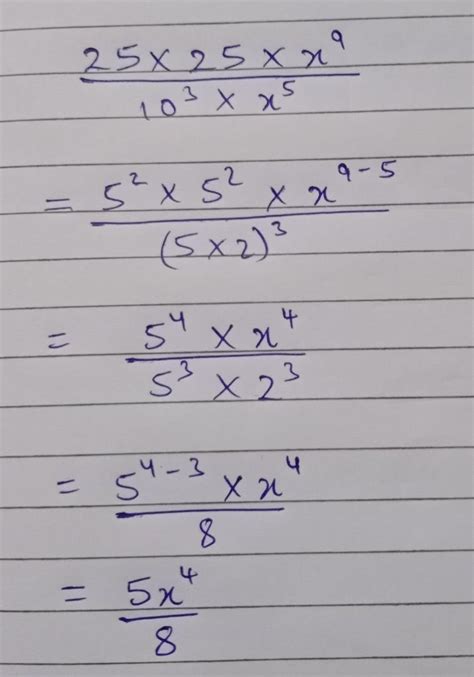 25 × 25 × x⁹
10³ × x⁵
= 5² × 5² × x⁹⁻⁵
(5×2)³
= 5⁴ × x⁴
5³ × 2³
= 5⁴⁻³ × x⁴
8
= 5x⁴
8